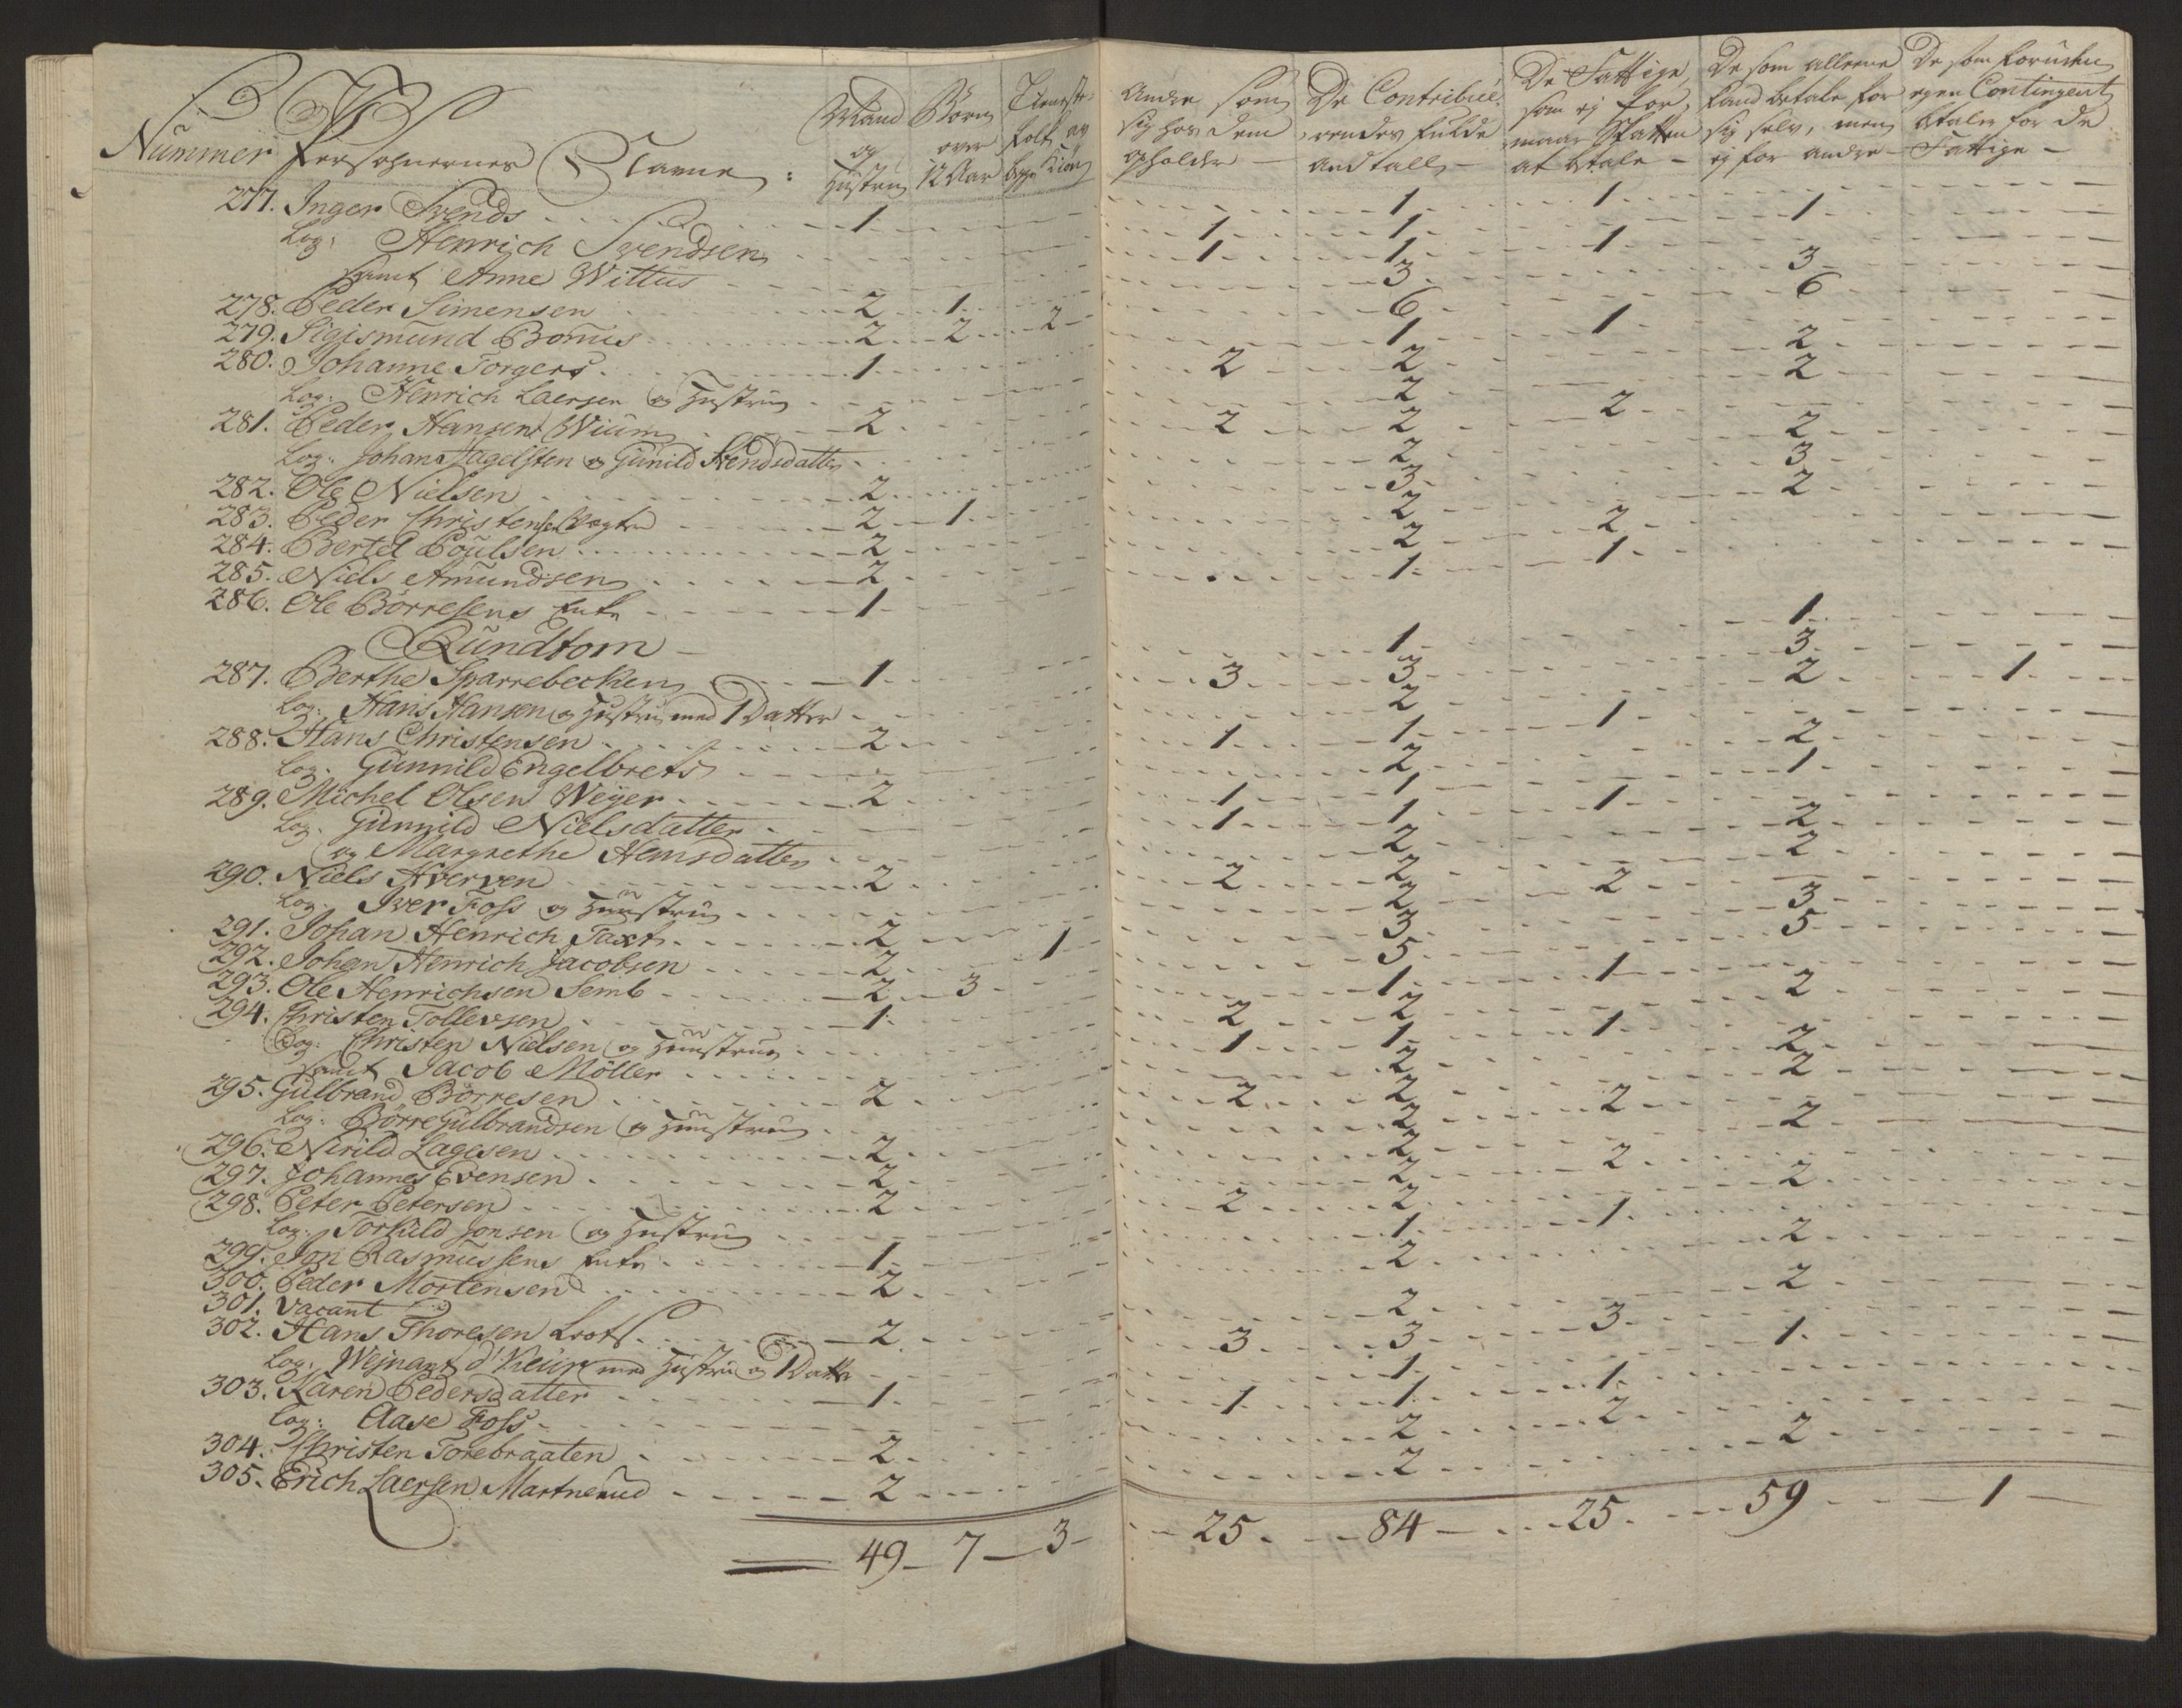 Nummer Persohnernes Navne: Mand og Hustru Börn over 12 Aar Tieneste folk af begge Kiön Andre som sig hos dem opholder — De Contribuerendes fulde Andtall — De Fattige, som ej formaar Skatten at betale — De som alleene kand betale for sig selv, men ej for andre — De som foruden egen Contingent betaler for de Fattige —
277. Inger Svends 1 1 1
Log: Henrich Svendsen 1 1 1
samt Anne Wittus 1 1 1
278. Peder Simensen 2 1 3 3
279. Sigismund Bomus 2 2 2 6 6
280. Johanne Torgers 1 1 1
Log: Henrich Laersen og Hustru 2 2 2
281. Peder Hansen Wium 2 2 2
Log: Johan Hagelsten og Gunild Svendsdatter 2 2 2
282. Ole Nielsen 2 2 2
283. Peder Christensen Vogter 2 1 3 3
284. Bertel Poulsen 2 2 2
285. Niels Amundsen 2 2 2
286. Ole Börresens Enke 1 1 1
Rundtom
287. Berthe Sparrebecken 1 1 1
Log: Hans Hansen og Hustru med 1 Datter 3 3 3
288. Hans Christensen 2 2 2 1
Log: Gunnild Engelbrets 1 1 1
289. Michel Olsen Weyer 2 2 2
Log: Gunnild Nielsdatter 1 1 1
og Margrethe Hansdatter 1 1 1
290. Niels Hverven 2 2 2
Log: Iver Foss og Hustru 2 2 2
291. Johan Henrich Taxt 2 2 2
292. Johan Henrich Jacobsen 2 1 3 3
293. Ole Henrichsen Semb 2 3 5 5
294. Christen Tollevsen 1 1 1
Log: Christen Nielsen og Hustrue 2 2 2
samt Jacob Möller 1 1 1
295. Gulbrand Börresen 2 2 2
Log: Börre Gulbrandsen og Hustrue 2 2 2
296. Nirild Lagesen 2 2 2
297. Johannes Evensen 2 2 2
298. Peter Petersen 2 2 2
Log: Torkild Jonsen og Hustru 2 2 2
299. Jon Rasmussens Enke 1 1 1
300. Peder Mortensen 2 2 2
301. Vacant
302. Hans Thoresen Lods 2 2 2
Log: Wejnant d'Keur med Hustru og 1 Datter 3 3 3
303. Karen Pedersdatter 1 1 1
Log: Aase Foss 1 1 1
304. Christen Torebraaten 2 2 2
305. Erich Laersen Martnerud 2 2 2
49 7 3 25 84 25 59 1